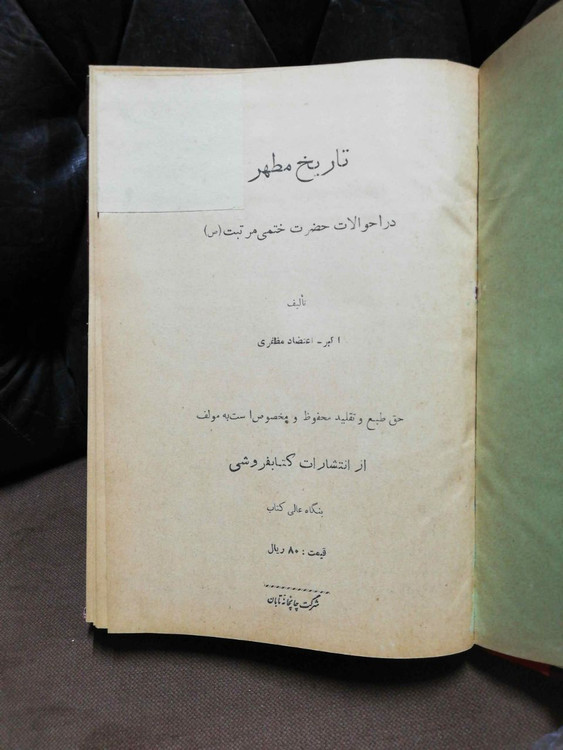 تاریخ مطهر
در احوالات حضرت ختمی مرتبت (ص)
تألیف
اکبر - اعتضاد مظفری
حق طبع و تقلید محفوظ و مخصوص است به مولف
از انتشارات کتابفروشی
بنگاه عالی کتاب
قیمت : ۸۰ ریال
شرکت چاپخانه تابان